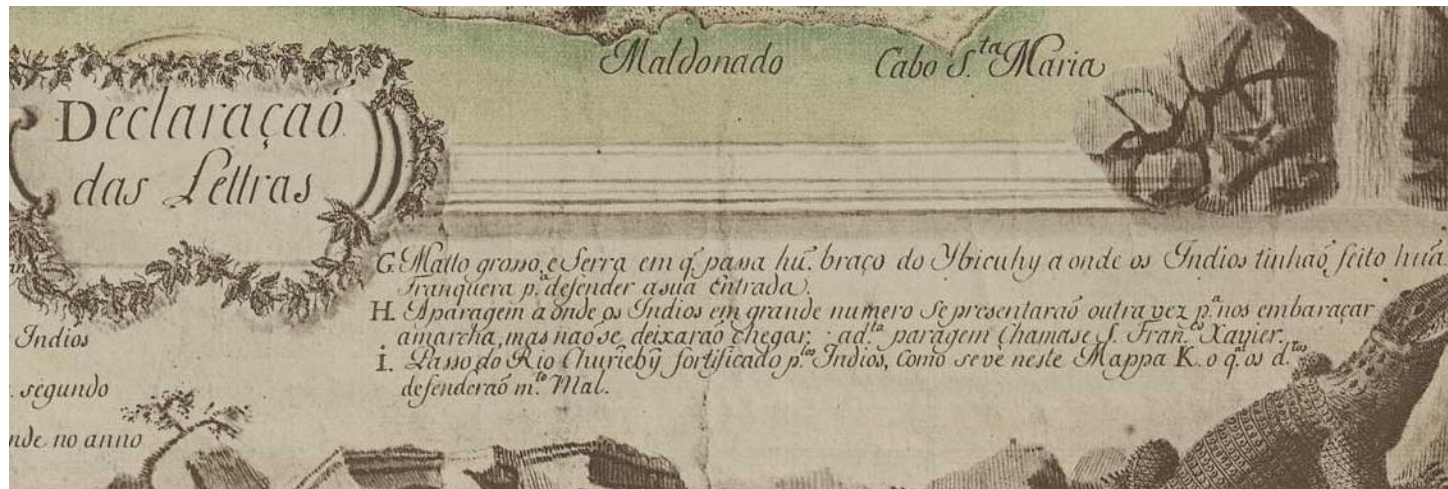 Maldonado
Cabo S.ta Maria
Declaraçaõ
das Lettras
G. Matto grosso, e Serra em q̃ passa hũ. braço do Ybicuhy a onde os Indios tinhaõ feito huã
Tranquera p.ª defender asua entrada.
H. Aparagem a onde os Indios em grande numero se presentaraõ outra vez p.ª nos embaraçar
amarcha, mas naõ se deixaraõ chegar, ad.ta paragem Chamase S. Fran.co Xavier.
I. Passo do Rio Churieby fortificado p.los Indios, Como seve neste Mappa K. o q.al os d.tos
defenderaõ m.to Mal.
Indios
segundo
nde no anno